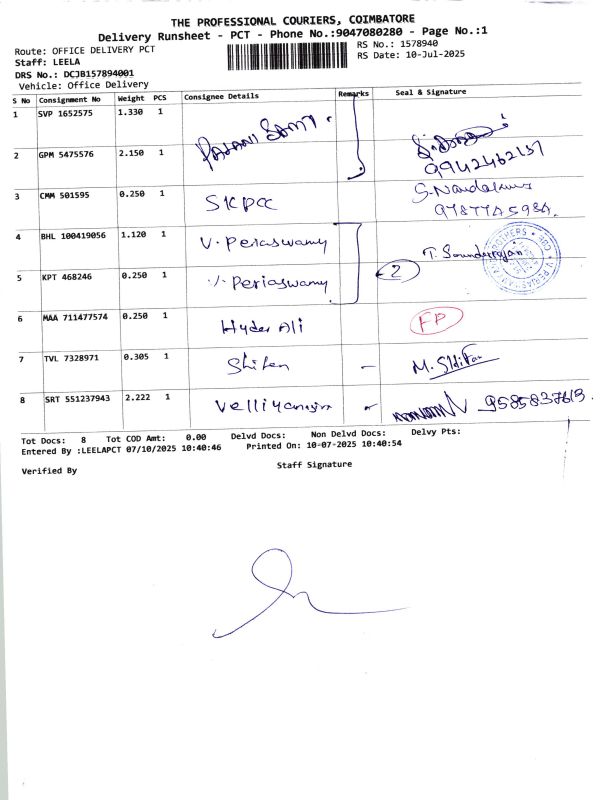 THE PROFESSIONAL COURIERS, COIMBATORE
Delivery Runsheet - PCT - Phone No.:9047080280 - Page No.:1
Route: OFFICE DELIVERY PCT
RS No.: 1578940
Staff: LEELA
RS Date: 10-Jul-2025
DRS No.: DCJB157894001
Vehicle: Office Delivery
S No Consignment No Weight PCS Consignee Details Remarks Seal & Signature
1 SVP 1652575 1.330 1
2 GPM 5475576 2.150 1 9942462137
3 CMM 501595 0.250 1 SKPCC
4 BHL 100419056 1.120 1 V. Periaswamy
5 KPT 468246 0.250 1 Periaswamy 2
6 MAA 711477574 0.250 1 Hyder Ali FP
7 TVL 7328971 0.305 1 -
8 SRT 551237943 2.222 1 - 9585837613.
Tot Docs: 8 Tot COD Amt: 0.00 Delvd Docs: Non Delvd Docs: Delvy Pts:
Entered By :LEELAPCT 07/10/2025 10:40:46 Printed On: 10-07-2025 10:40:54
Verified By Staff Signature